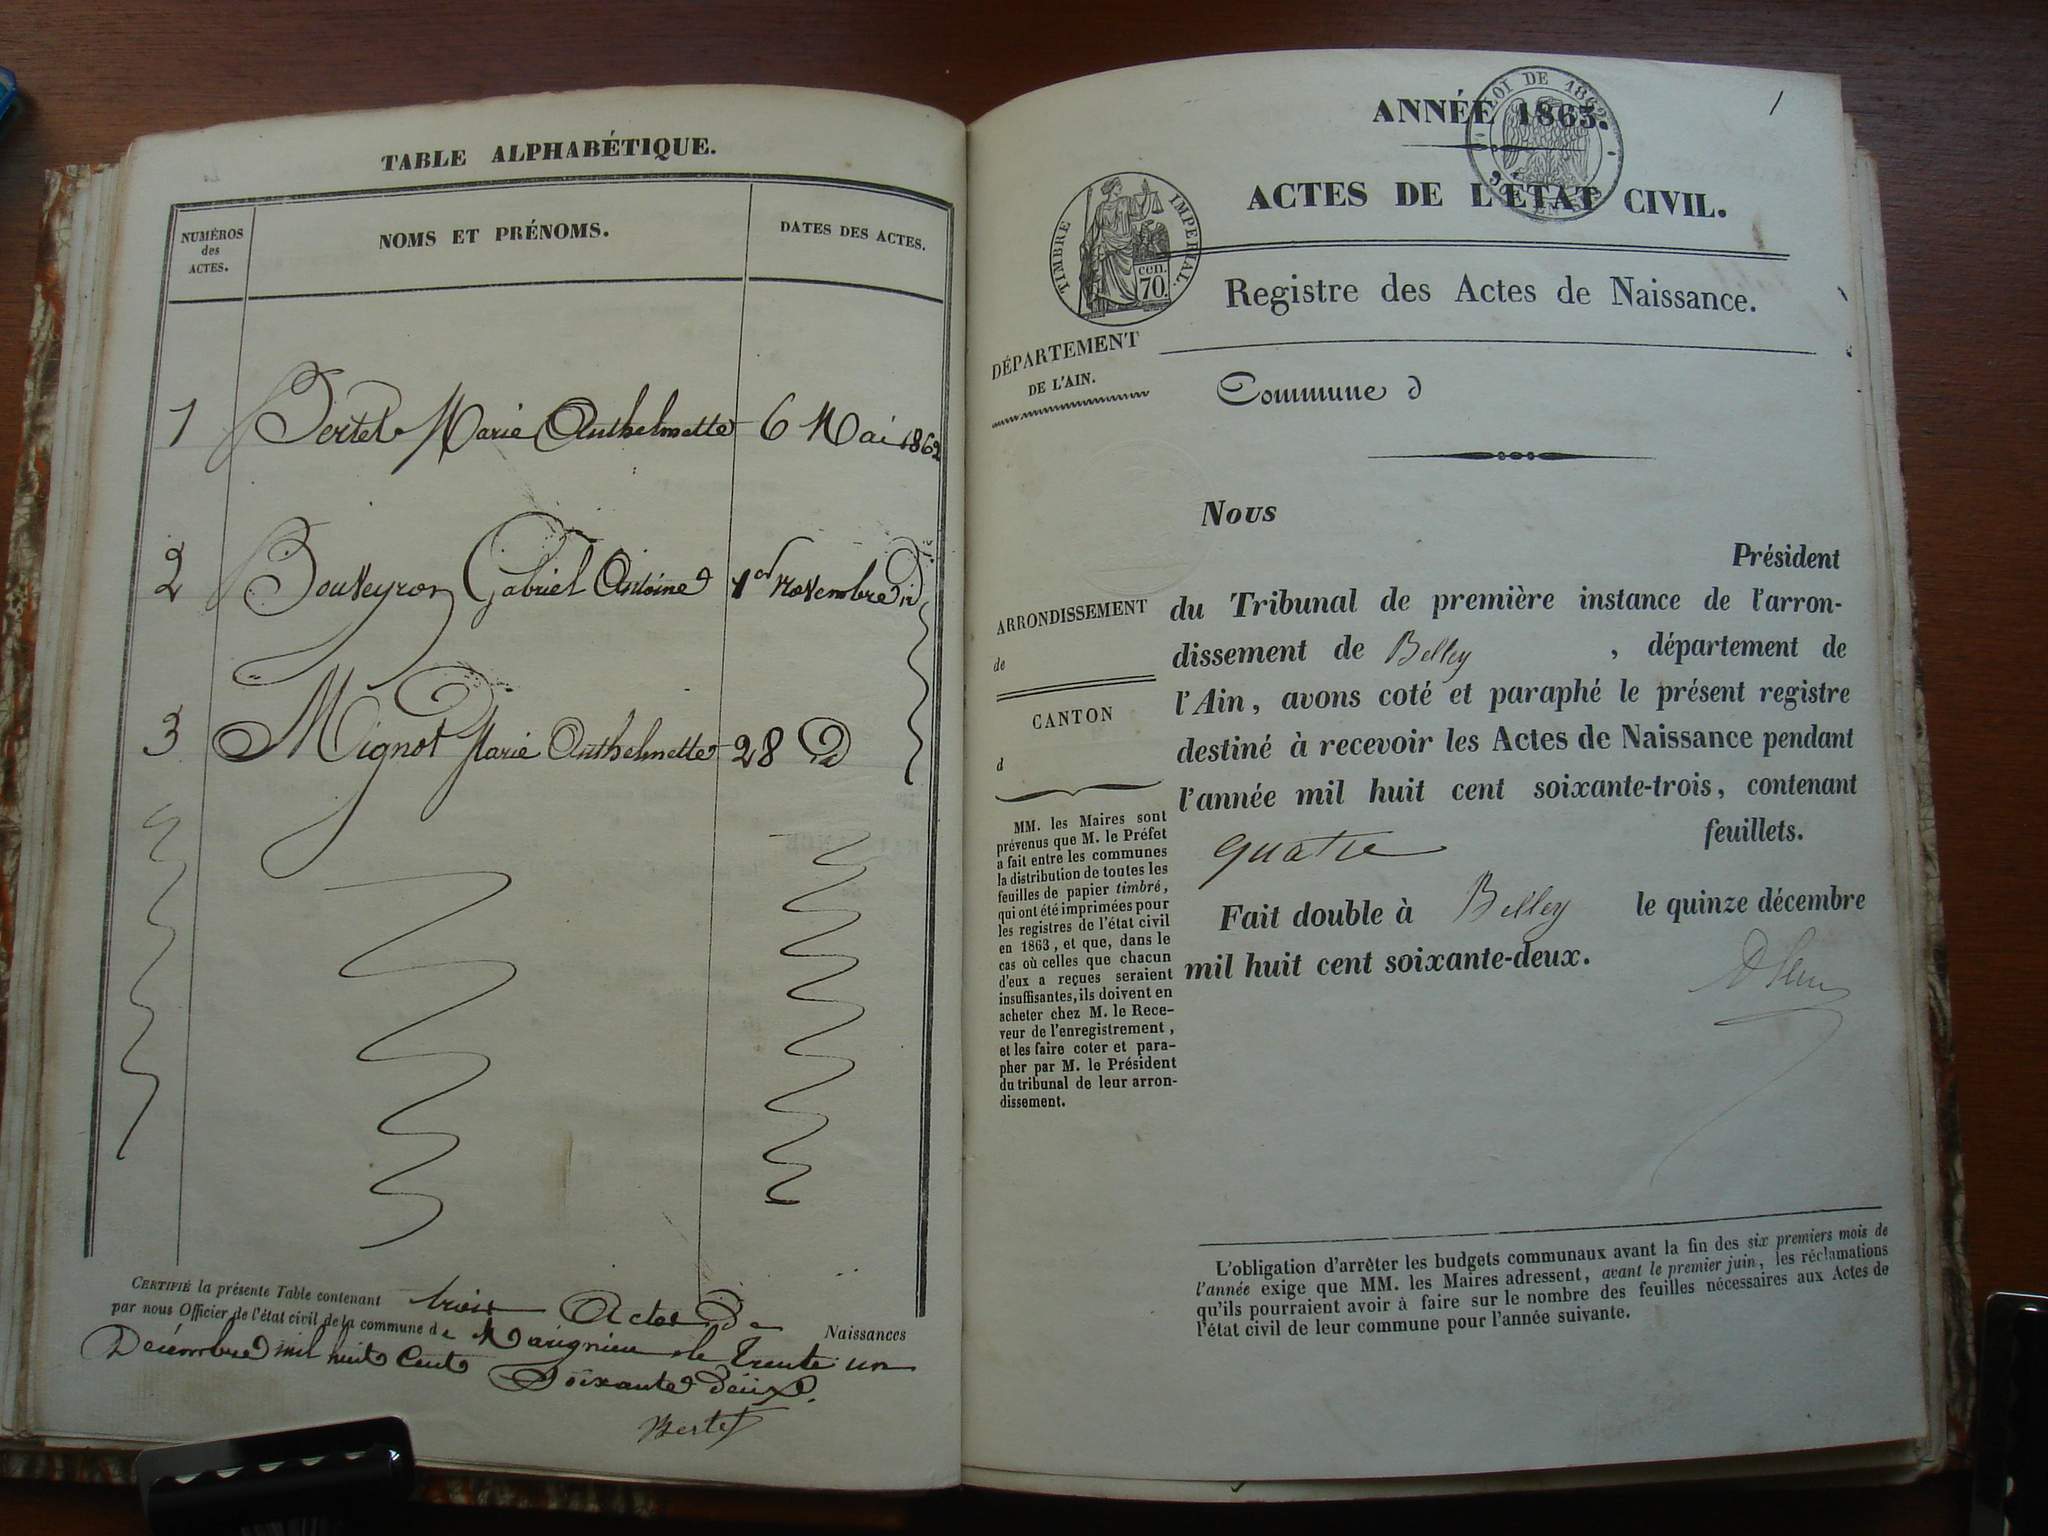 TABLE ALPHABÉTIQUE.
NUMÉROS
des
ACTES.
NOMS ET PRÉNOMS.
DATES DES ACTES.
1 Bertet Marie Anthelmette 6 Mai 1862
2 Bouveyron Gabriel Antoine 1er Novembre d
3 Mignot Marie Anthelmette 28 d
CERTIFIÉ la présente Table contenant trois Actes De
Naissances
par nous Officier de l'état civil de la commune de Marignieu le trente un
Décembre mil huit Cent
Soixante deux.
Bertet
1
ANNÉE 1863.
LOI DE 1862
ACTES DE L'ÉTAT CIVIL.
TIMBRE IMPERIAL.
cen.
70.
Registre des Actes de Naissance.
DÉPARTEMENT
DE L'AIN.
Commune d
ARRONDISSEMENT
de
CANTON
d
MM. les Maires sont
prévenus que M. le Préfet
a fait entre les communes
la distribution de toutes les
feuilles de papier timbré,
qui ont été imprimées pour
les registres de l'état civil
en 1863, et que, dans le
cas où celles que chacun
d'eux a reçues seraient
insuffisantes, ils doivent en
acheter chez M. le Rece-
veur de l'enregistrement,
et les faire coter et para-
pher par M. le Président
du tribunal de leur arron-
dissement.
Nous
Président
du Tribunal de première instance de l'arron-
dissement de Belley, département de
l'Ain, avons coté et paraphé le présent registre
destiné à recevoir les Actes de Naissance pendant
l'année mil huit cent soixante-trois, contenant
quatre feuillets.
Fait double à Belley le quinze décembre
mil huit cent soixante-deux.
L'obligation d'arrêter les budgets communaux avant la fin des six premiers mois de
l'année exige que MM. les Maires adressent, avant le premier juin, les réclamations
qu'ils pourraient avoir à faire sur le nombre des feuilles nécessaires aux Actes de
l'état civil de leur commune pour l'année suivante.